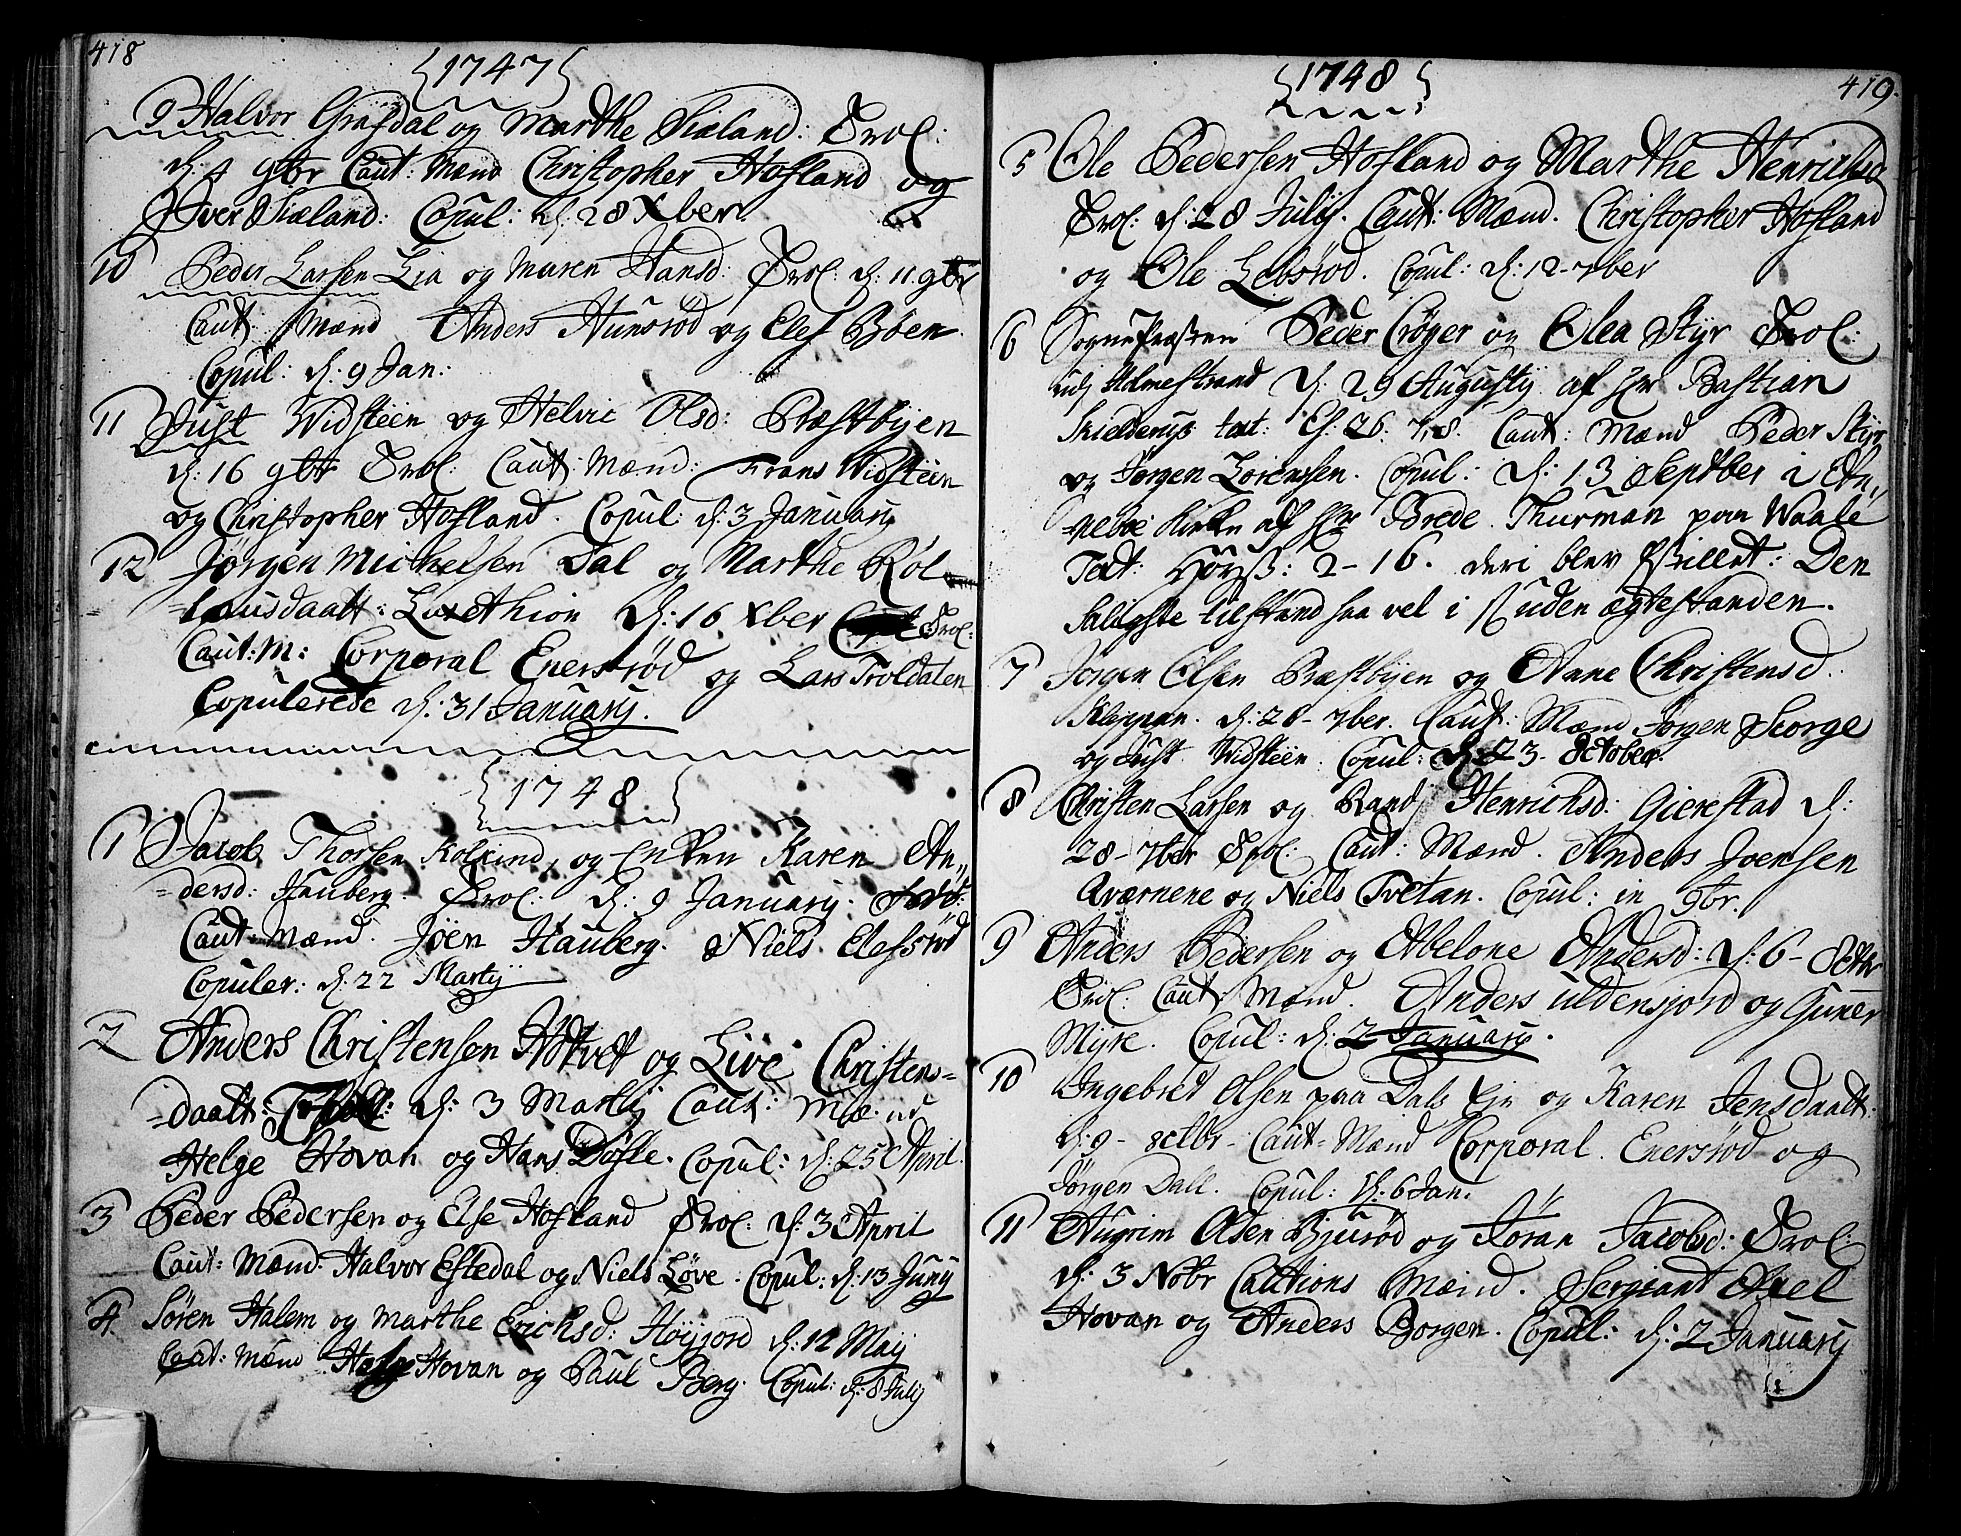 418
1747
9 Halvor Grafdal og Marthe Siæland: Trol:
d: 4 9br Caut: Mænd Christopher Hofland og
Iver Siæland: Copul: d: 28 Xber.
10 Peder Larsen Lia og Maren Hansd: Trol: d: 11 9br
Caut: Mænd Anders Hunsrød og Elef Bøen
Copul: d: 9 Jan:
11 Just Widsteen og Helvic Olsd: Præstbyen
d: 16 9br Trol: Caut: Mænd: Frans Widsteen
og Christopher Hofland. Copul: d: 3 Januarij
12 Jørgen Michelsen Dal og Marthe Røl-
=lausdaatt: d: 16 Xber Trol:
Caut: M: Corporal Enersrød og Lars Troldalen
Copulerede d: 31 Januarij.
1748
1 Jacob Thorsen Kolkind, og Enken Karen An,,
=dersd: Hauberg. Trol: d: 9 Januarij.
Caut: Mænd. Joen Hauberg. & Niels Elefsrød
Copuler: d: 22 Martij
2 Anders Christensen Hotvet og Live Christens=
=daatt: d: 3 Martij Caut: Mænd
Helge Hovan og Hans Døfle. Copul: d: 25 April.
3 Peder Pedersen og Else Hofland Trol: d: 3 April
Caut: Mænd: Halvor Eftedal og Niels Løve. Copul: d: 13 Junij
4 Søren Halem og Marthe Erichsd: Høyjord d: 12 Maij
Caut: Mænd Hovan og Paul Berg. Copul: d: 8 Julij
419.
1748
5 Ole Pedersen Hofland og Marthe Henrichsd
Trol: d: 28 Julij. Caut: Mænd. Christopher Hofland
og Ole Lebsrød. Copul: d: 12-7ber
6 Sogne Præsten Peder Crøger og Olea Styr Trol:
udj Holmestrand d: 29 Augustij af Hr Bastian
text: Es: 26. 7,8. Caut: Mænd Peder Styr
og Jørgen Lorensen. Copul: d: 13 Septber i An,,
=nebøe Kirke af Hr Brede Thurman paa Waale
Text: Høys: 2-16. deri blev forestillet: Den
Saligste tilstand saa vel i som uden ægtestanden.
7 Jørgen Olsen Præstbyen og Anne Christensd:
Kleppan. d: 26-7ber. Caut: Mænd Jørgen Skorge
og Just Widsteen. Copul: d: 23 October.
8 Christen Larsen og Randj Henrichsd: Gierestad d:
28-7br Trol: Caut: Mænd. Anders Joensen
Qværnene og Niels Tvetan. Copul: in 9br.
9 Anders Pedersen og Abelone Andersd: d: 6-8tbr
Trol: Caut: Mænd. Anders uldensjord og Guner
Myre. Copul: d: 2 Januarij.
10 Ingebret Olsen paa Dals Eje og Karen Jensdaatt:
d: 9- 8ctbr- Caut= Mænd Corporal Enersrød og
Jørgen Dall. Copul: d: 6 Jan:
11 Augrim Olsen Bjurød og Jøran Jacobsd: Trol:
d: 3 Nobr Cautions Mænd. Sergiant Axel
Hovan og Anders Borgen. Copul: d: 2 Januarij